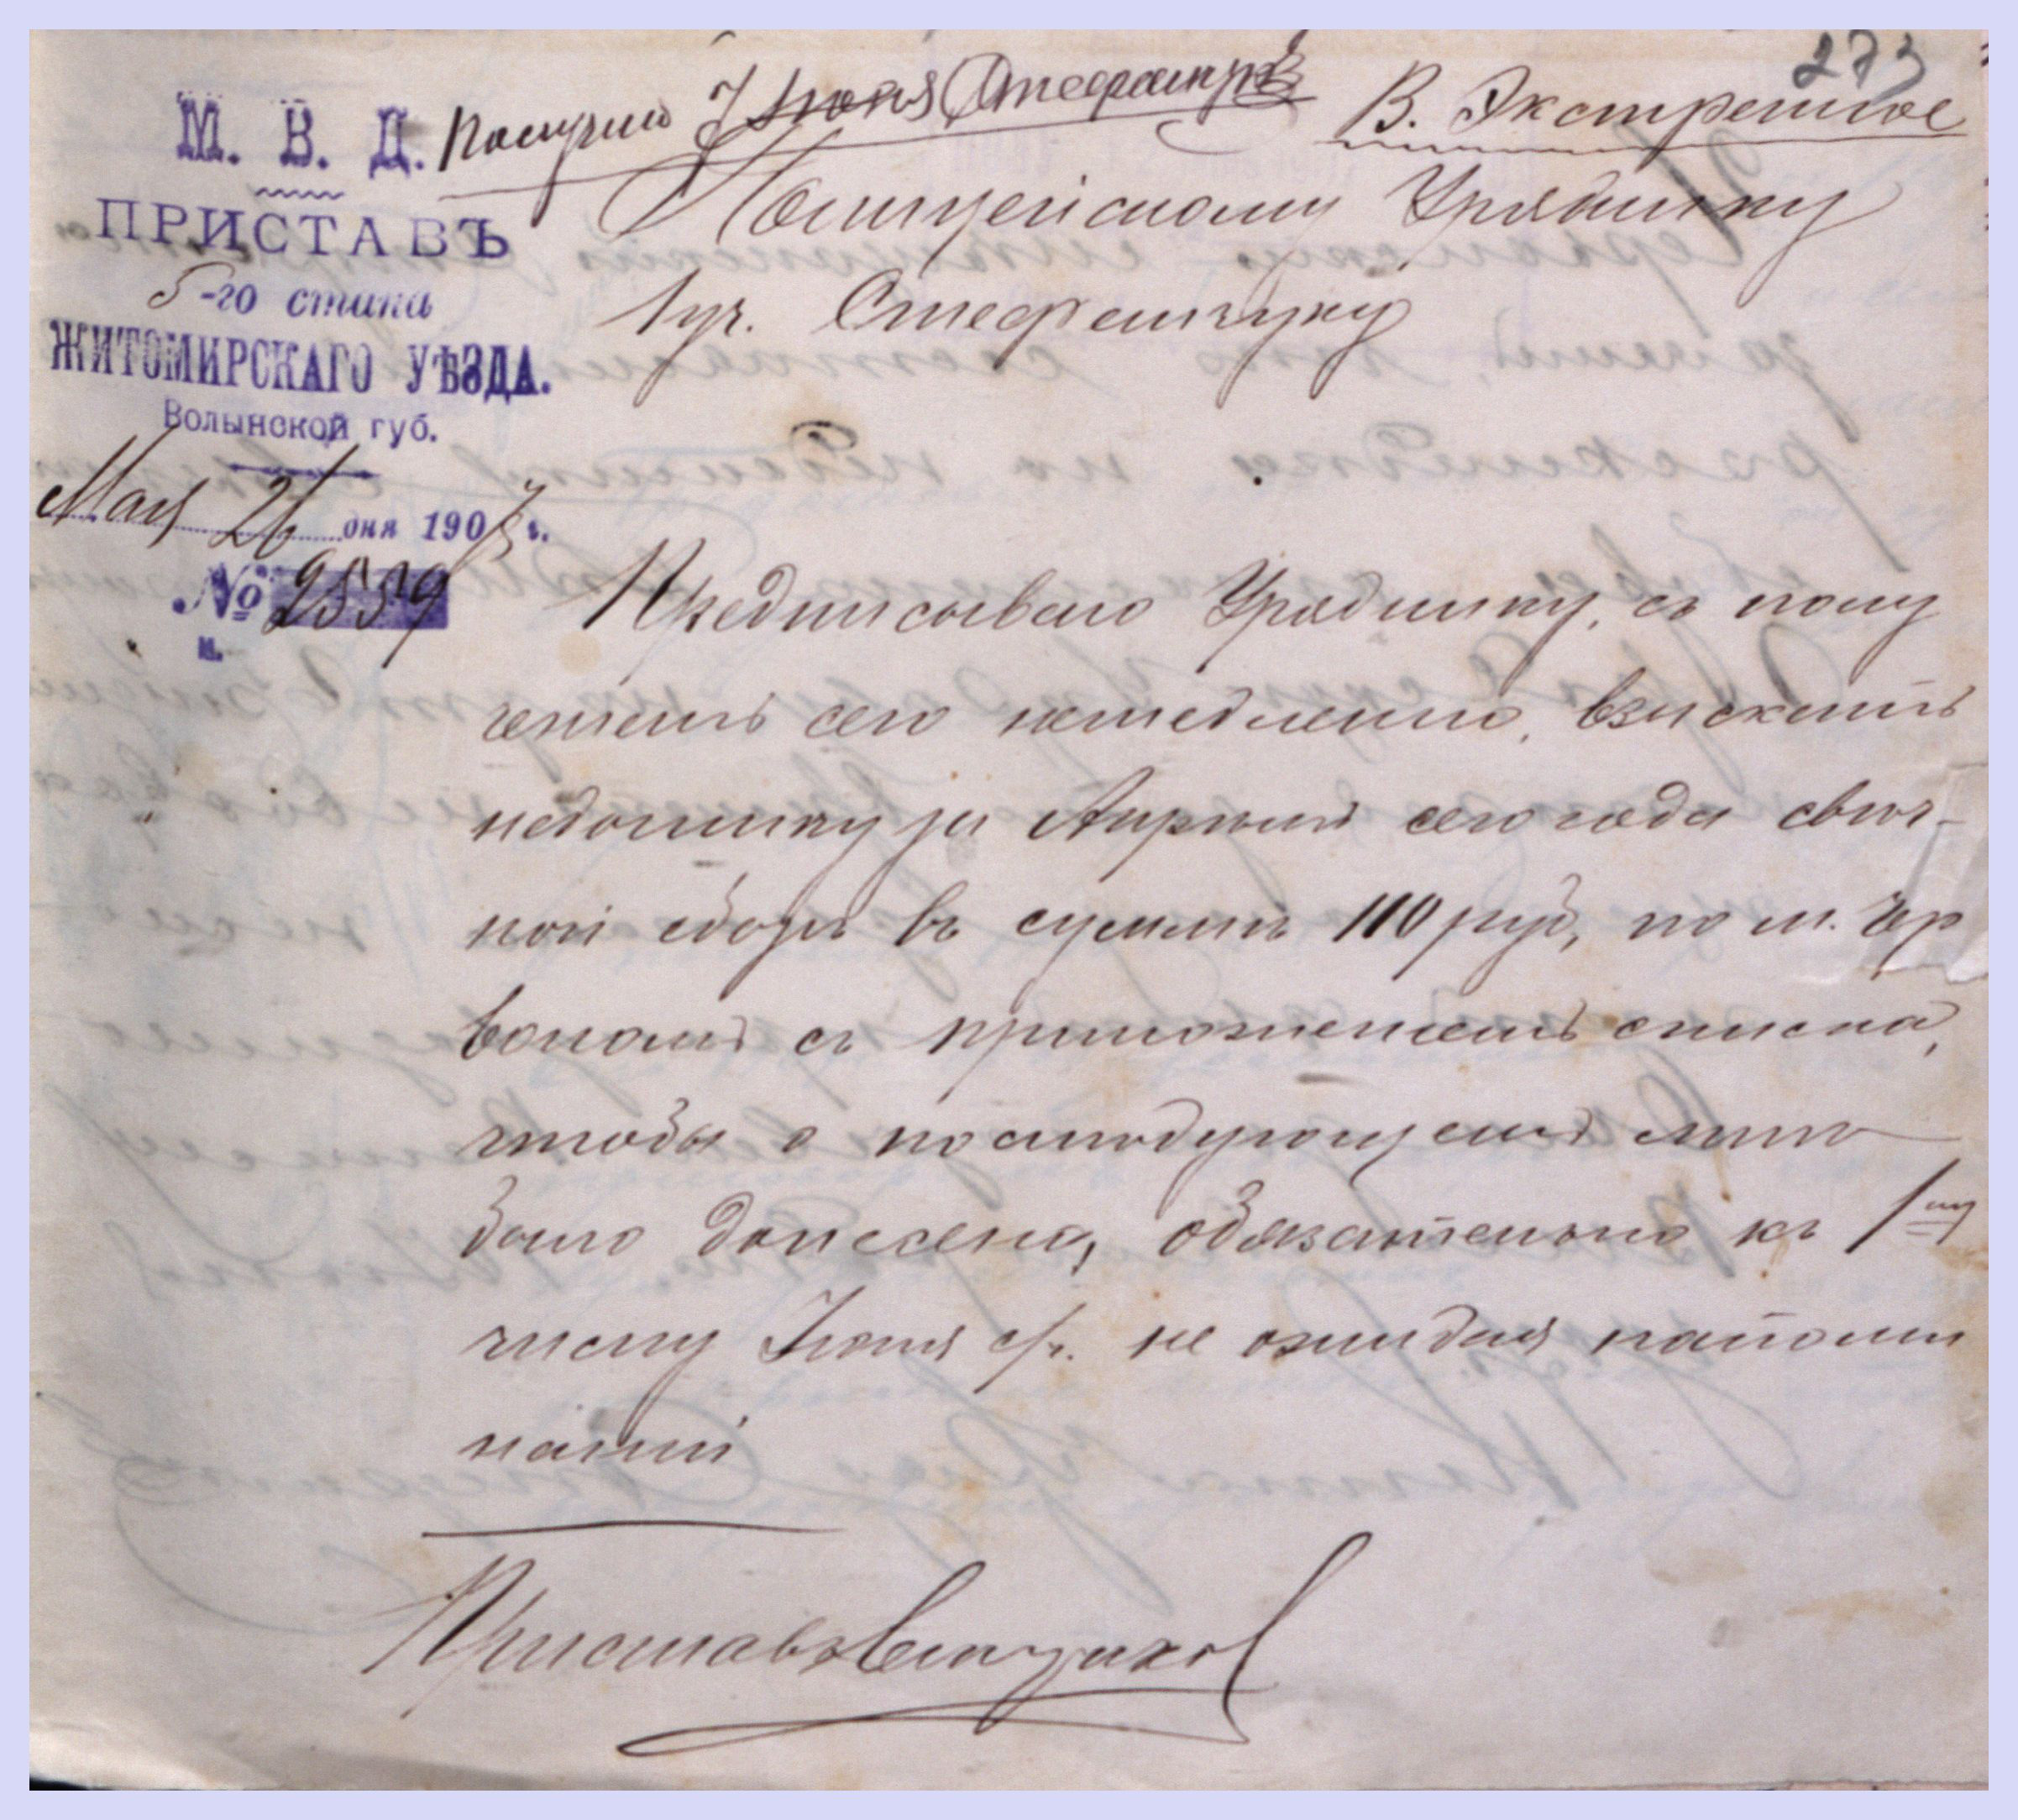 273
Получил 7 Июня Стефанчук
В. Экстренное
М. В. Д.
ПРИСТАВЪ
5-го стана
ЖИТОМИРСКАГО УѢЗДА.
Волынской губ.
Мая 26 дня 1907 г.
№ 2559
Полицейскому Уряднику
1 уч. Стефанчуку
Предписываю Уряднику, съ полу
чениемъ сего немедленно, взискать
недоимку за Апрель сего года свеч-
ной сборъ въ суммѣ 110 руб, по м. Чер
воному съ приложениемъ списка,
чтобы о послѣдующемъ мнѣ
было донесено, обязательно къ 1му
числу Июня с/г. не ожидая напоми
наний
Приставъ